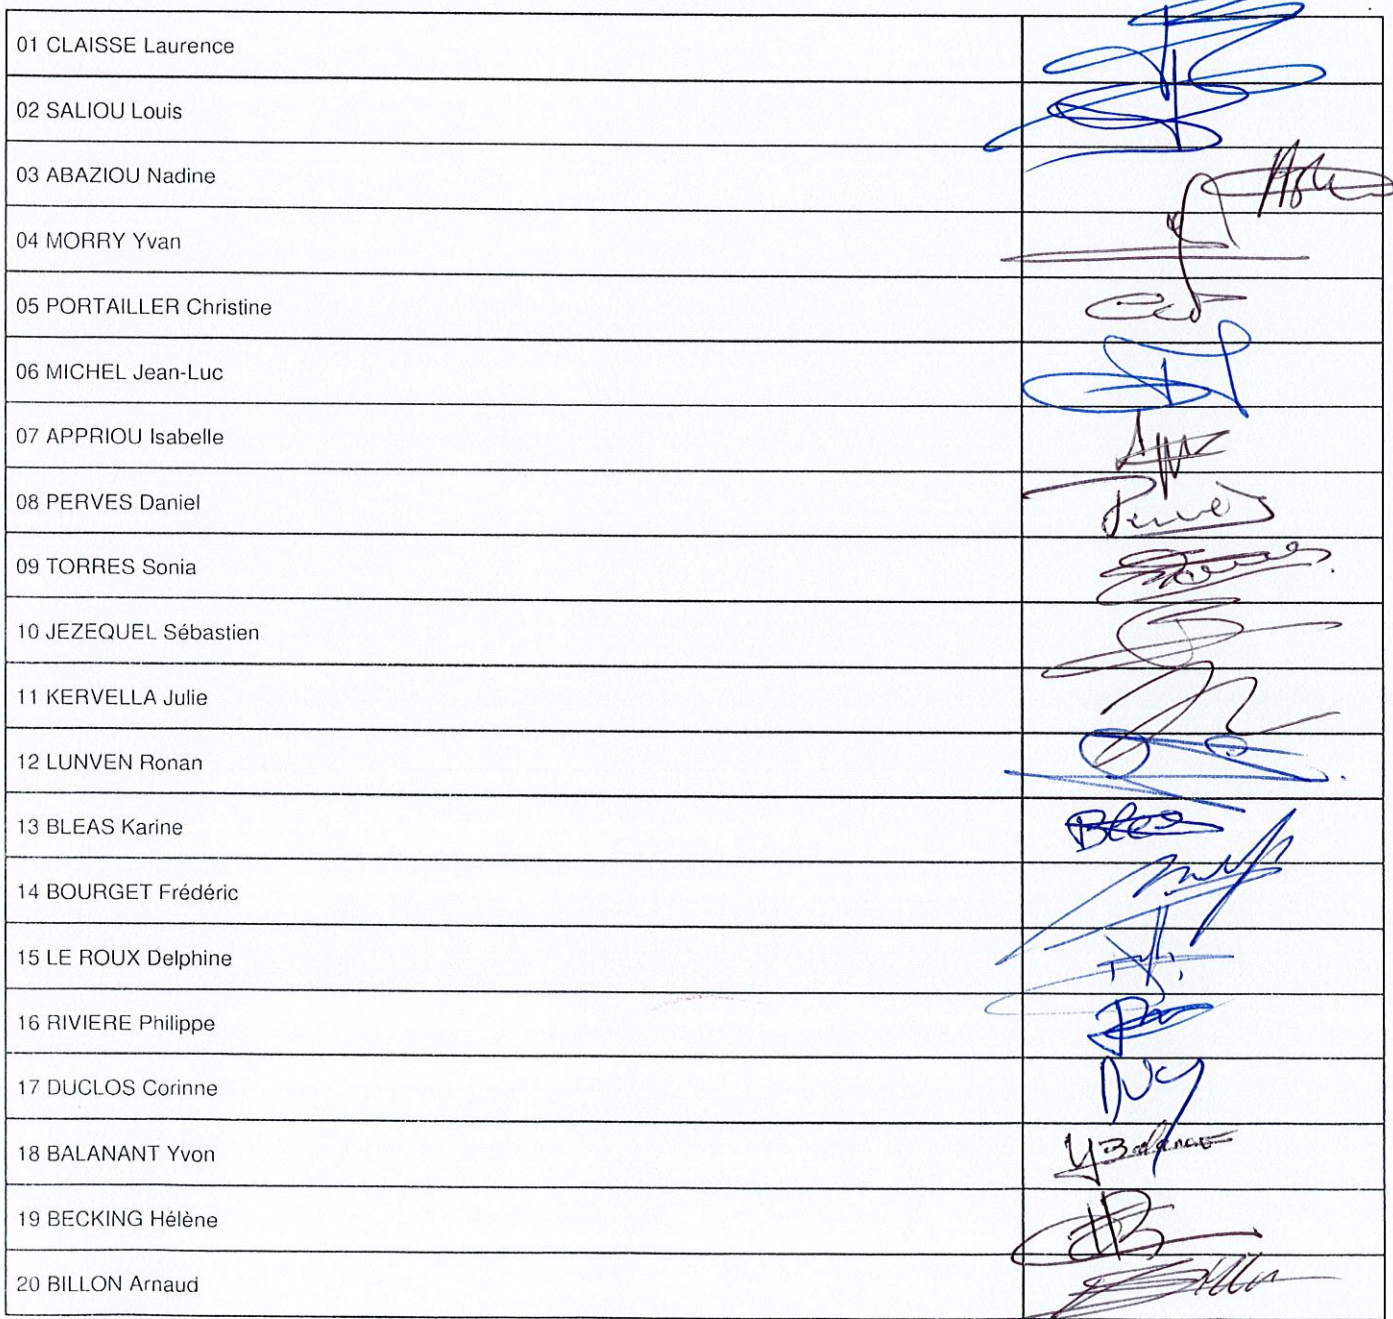 01 CLAISSE Laurence
02 SALIOU Louis
03 ABAZIOU Nadine
04 MORRY Yvan
05 PORTAILLER Christine
06 MICHEL Jean-Luc
07 APPRIOU Isabelle
08 PERVES Daniel
09 TORRES Sonia
10 JEZEQUEL Sébastien
11 KERVELLA Julie
12 LUNVEN Ronan
13 BLEAS Karine
14 BOURGET Frédéric
15 LE ROUX Delphine
16 RIVIERE Philippe
17 DUCLOS Corinne
18 BALANANT Yvon
19 BECKING Hélène
20 BILLON Arnaud